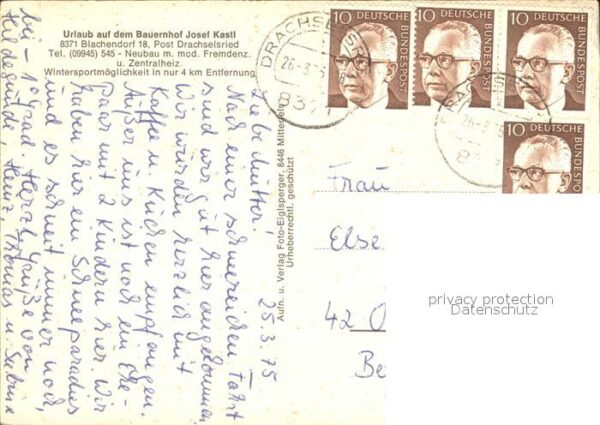 Urlaub auf dem Bauernhof Josef Kastl
8371 Blachendorf 18, Post Drachselsried
Tel. (09945) 545 - Neubau m. mod. Fremdenz.
u. Zentralheiz.
Wintersportmöglichkeit in nur 4 km Entfernung
25.3.75
Liebe Mutter!
Nach einer schneereichen Fahrt
sind wir gut hier angekommen
Wir wurden herzlich mit
Kaffee u. Kuchen empfangen.
Außer uns ist noch ein Ehe-
paar mit 2 Kindern hier. Wir
haben hier ein Schneeparadies
und es schneit immer noch,
bei -10 Grad. Herzl. Grüße von
Heinz, Thomas u. Sabine
Aufn. u. Verlag Foto-Eiglsperger, 8446 Mitterfels
Urheberrechtl. geschützt
10 DEUTSCHE BUNDESPOST
10 DEUTSCHE BUNDESPOST
10 DEUTSCHE BUNDESPOST
10 DEUTSCHE BUNDESPOST
DRACHSELSRIED
26-3-75
8371
26-3-75
Frau
Else
42 O
Be
privacy protection
Datenschutz